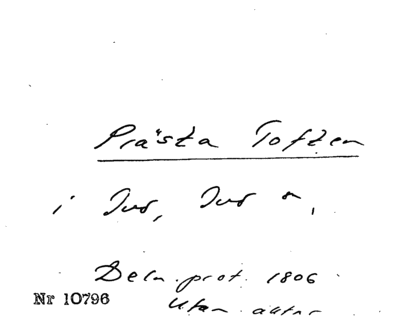 Prästa Toften
i Ive, Ive s.,
Deln. prot. 1806
Nr 10796
Utan aktnr